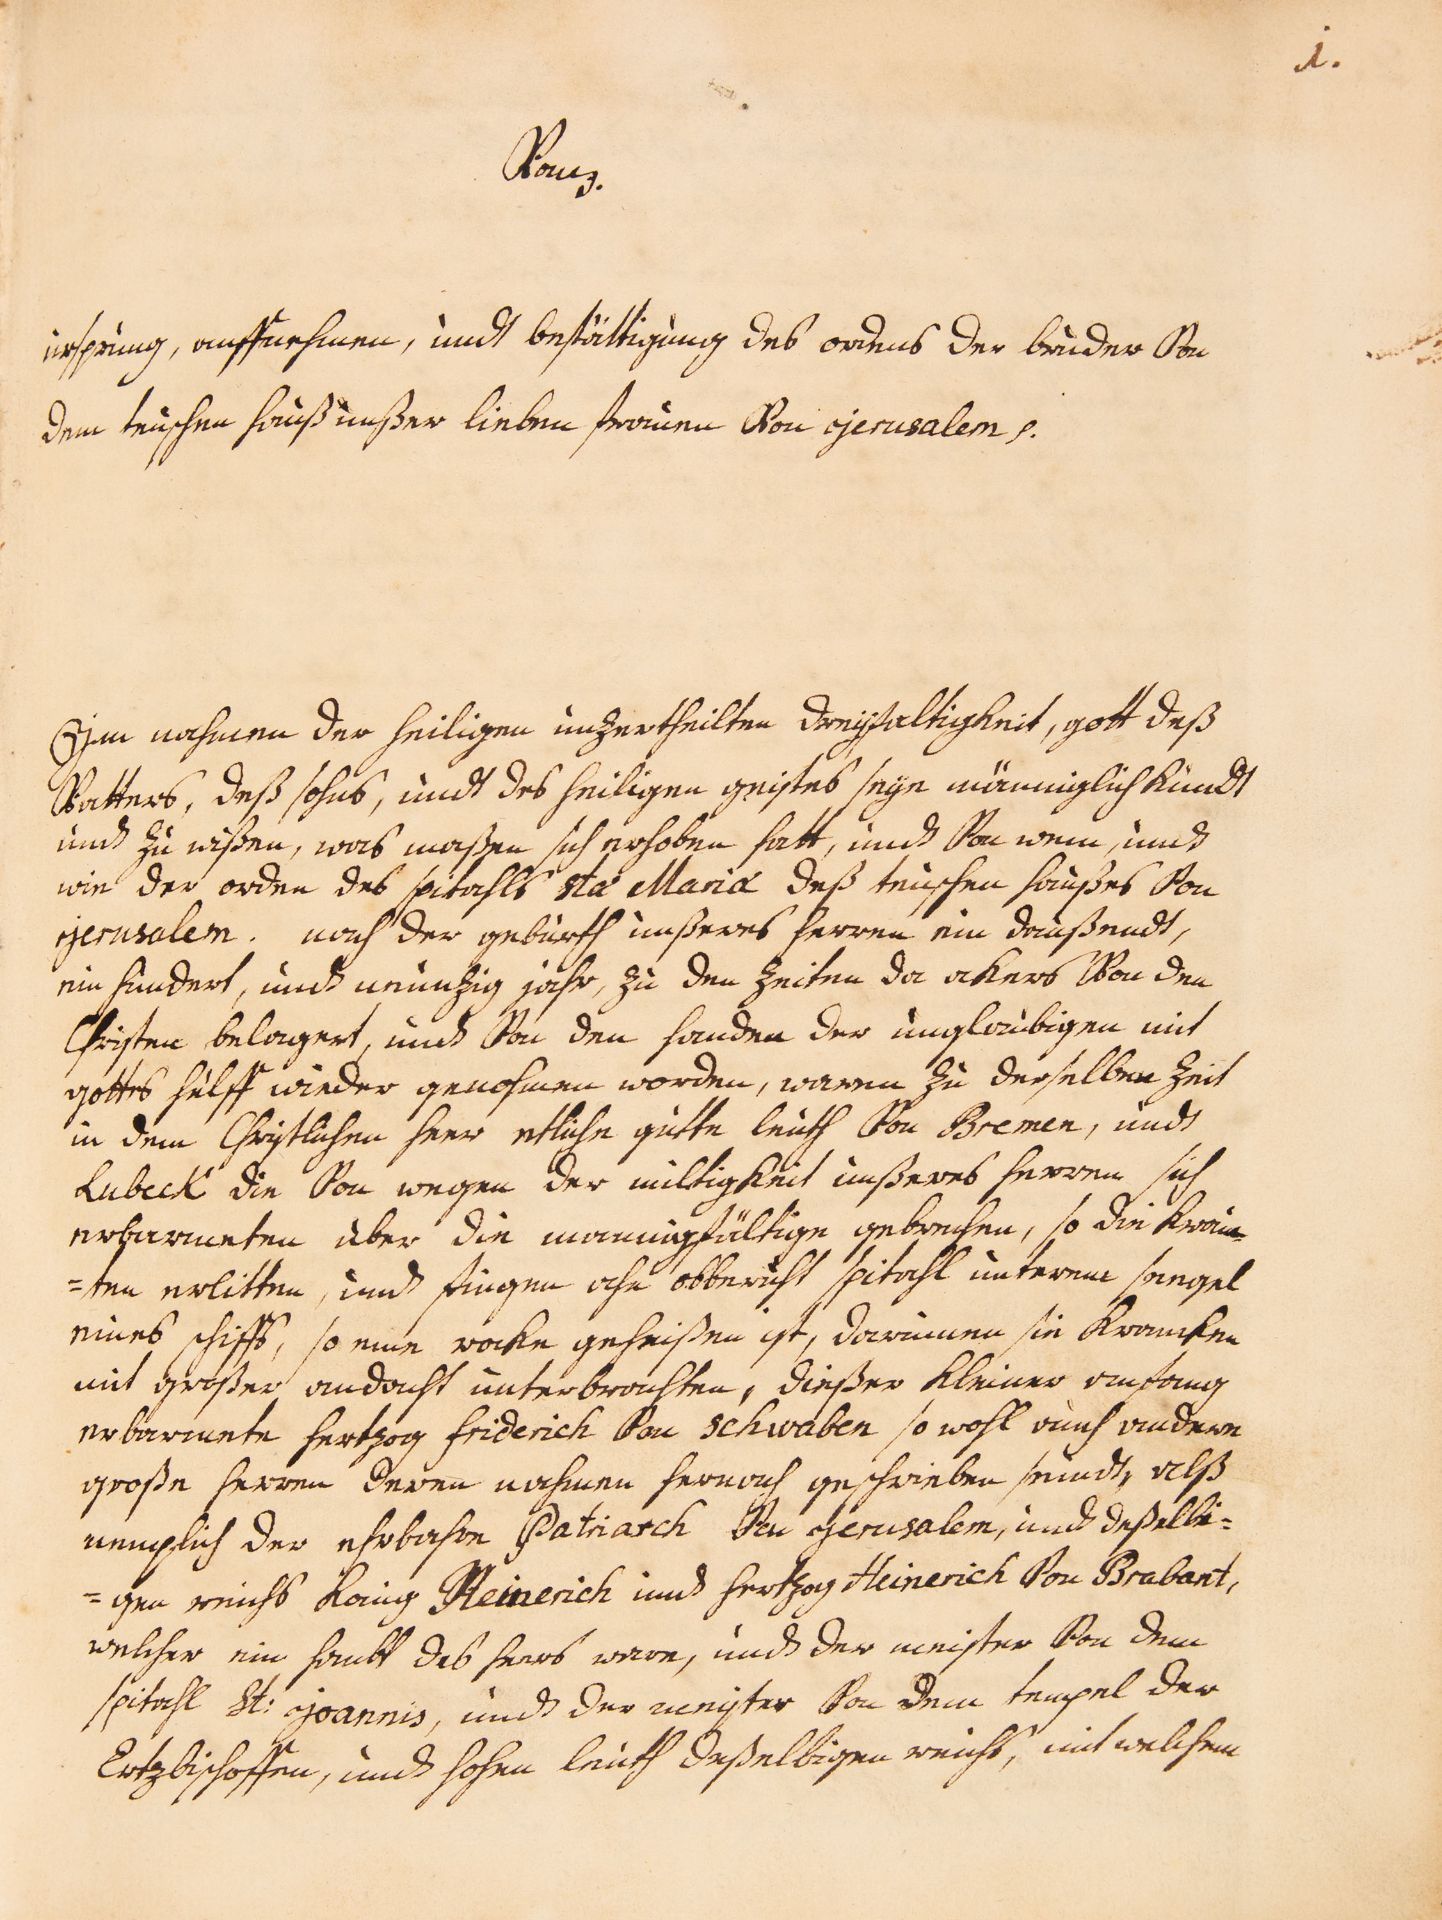 1.
Von
ursprung, auffnehmen, undt bestättigung des ordens der bruder Von
dem teuschen hauß unßer lieben frauen Von Jerusalem p.
Im nahmen der heiligen unzertheilten dreyfaltigkeit, gott deß
Vatters, deß sohns, undt des heiligen geistes seye männiglich kundt
und zu wißen, was maßen sich erhoben hatt, und Von wem, und
wie der orden des spitahls sta Maria deß teuschen haußes Von
Jerusalem. nach der geburth unßeres herren ein daußendt,
ein hundert, und neunzig jahr, zu den Zeiten da akers Von den
Christen belagert, und Von den handen der unglaubigen mit
gottes hülff wieder genohmen worden, waren zu derselben Zeit
in dem Christlichen heer etliche gutte leuth Von Bremen, undt
Lubeck die Von wegen der miltigkeit unßeres herren sich
erbarmeten über die mannigfältige gebrechen, so die Kran=
=ken erlitten, und fingen ahn obbericht spitahl unterem seegel
eines schiffs, so eine kocke geheißen ist, darinnen sie Krancken
mit großer andacht unterbrachten, dießer kleiner anfang
erbarmete hertzog friderich Von schwaben so wohl auch andere
große herren deren nahmen hernach geschrieben seindt, alß
nemplich der ehrbahre Patriarch Von Jerusalem, und deßelbi=
=gen reichs König Heinerich und hertzog Heinerich Von Brabant,
welcher ein haubt des heers ware, und der meister Von dem
spitahl St: Joannis, und der meyster Von dem tempel der
Ertzbischoffen, und hohen leuth deßelbigen reichs, mit welchem